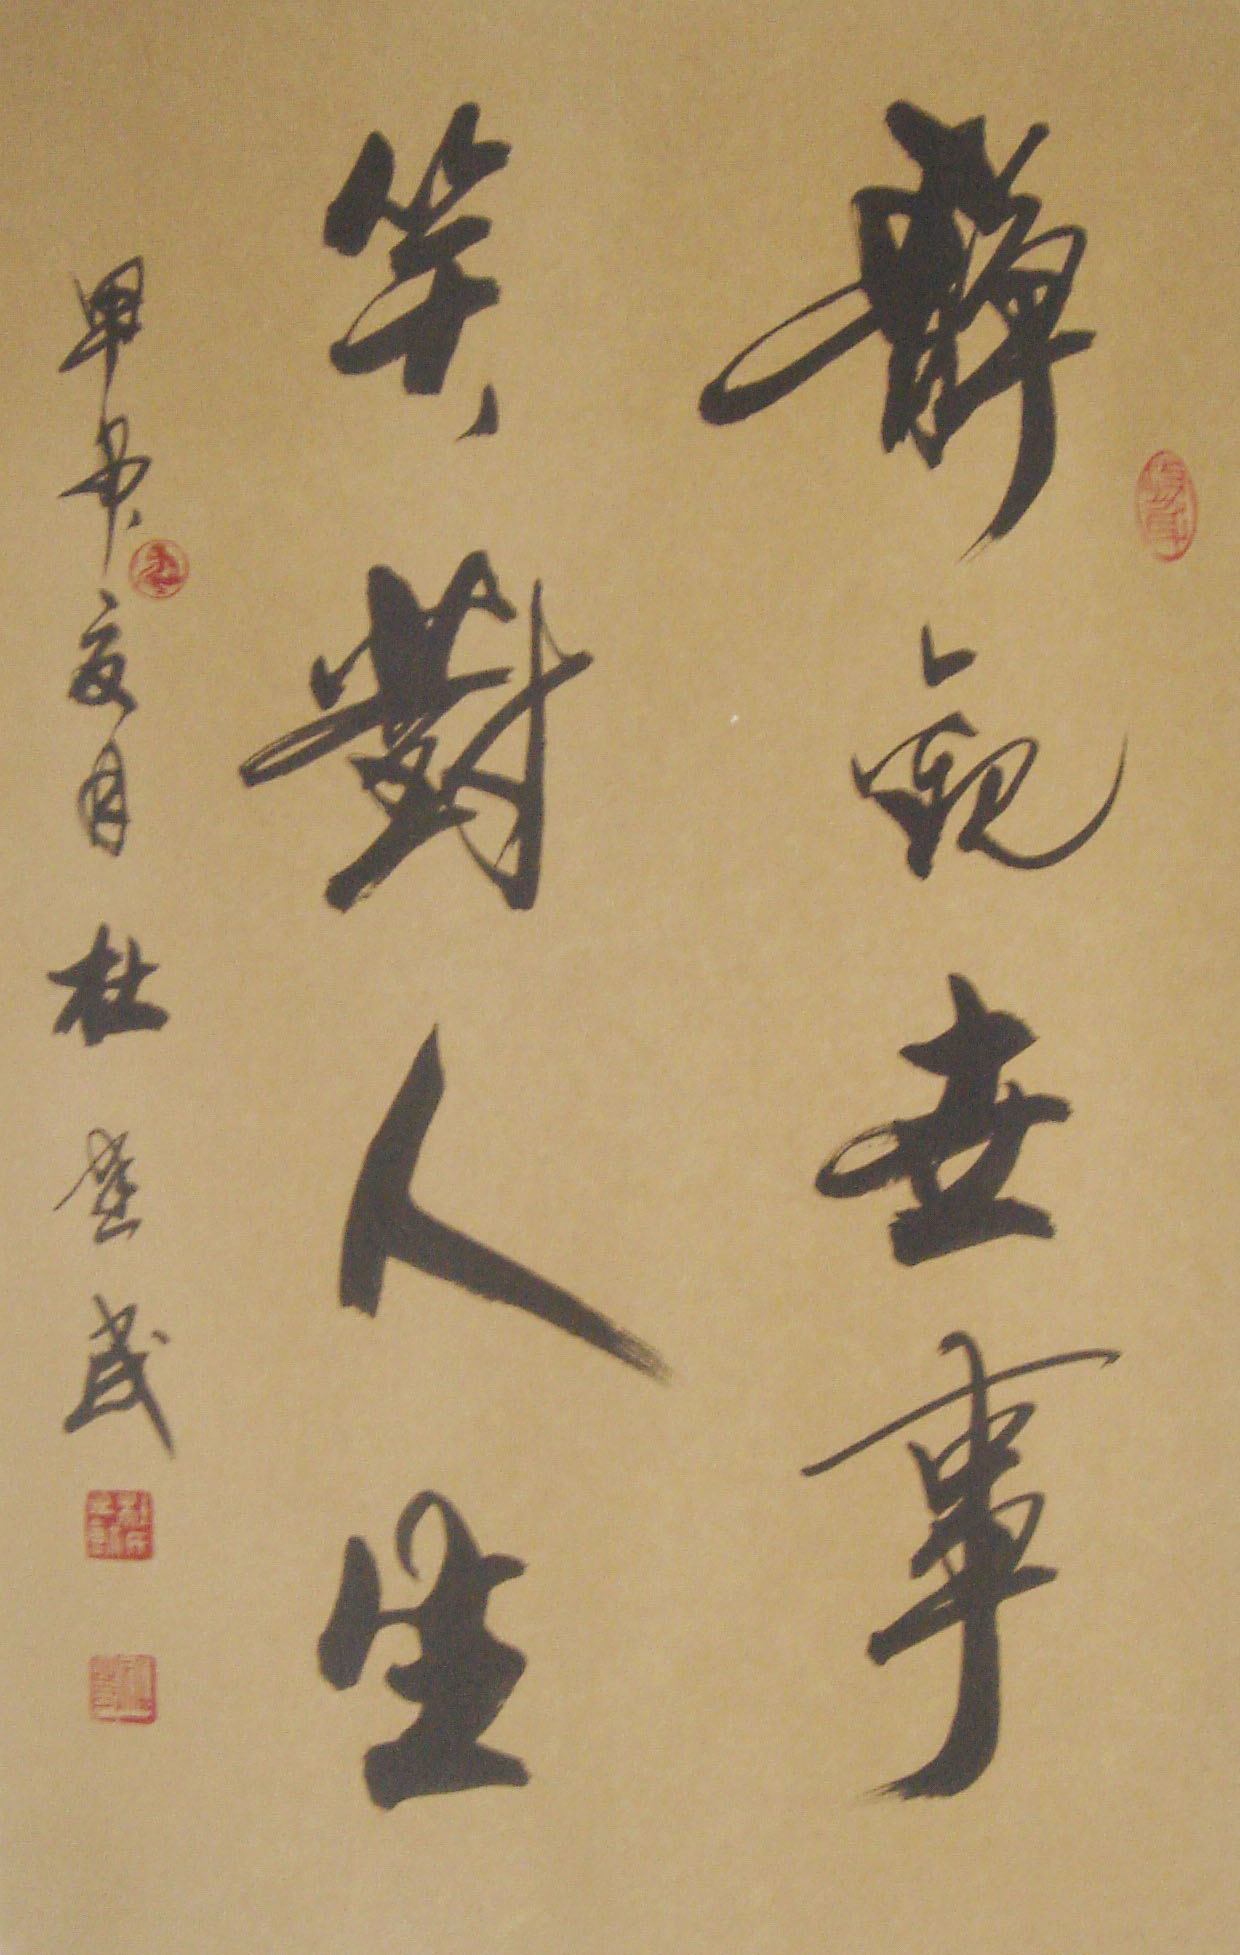 靜觀世事
笑對人生
甲申夏月杜